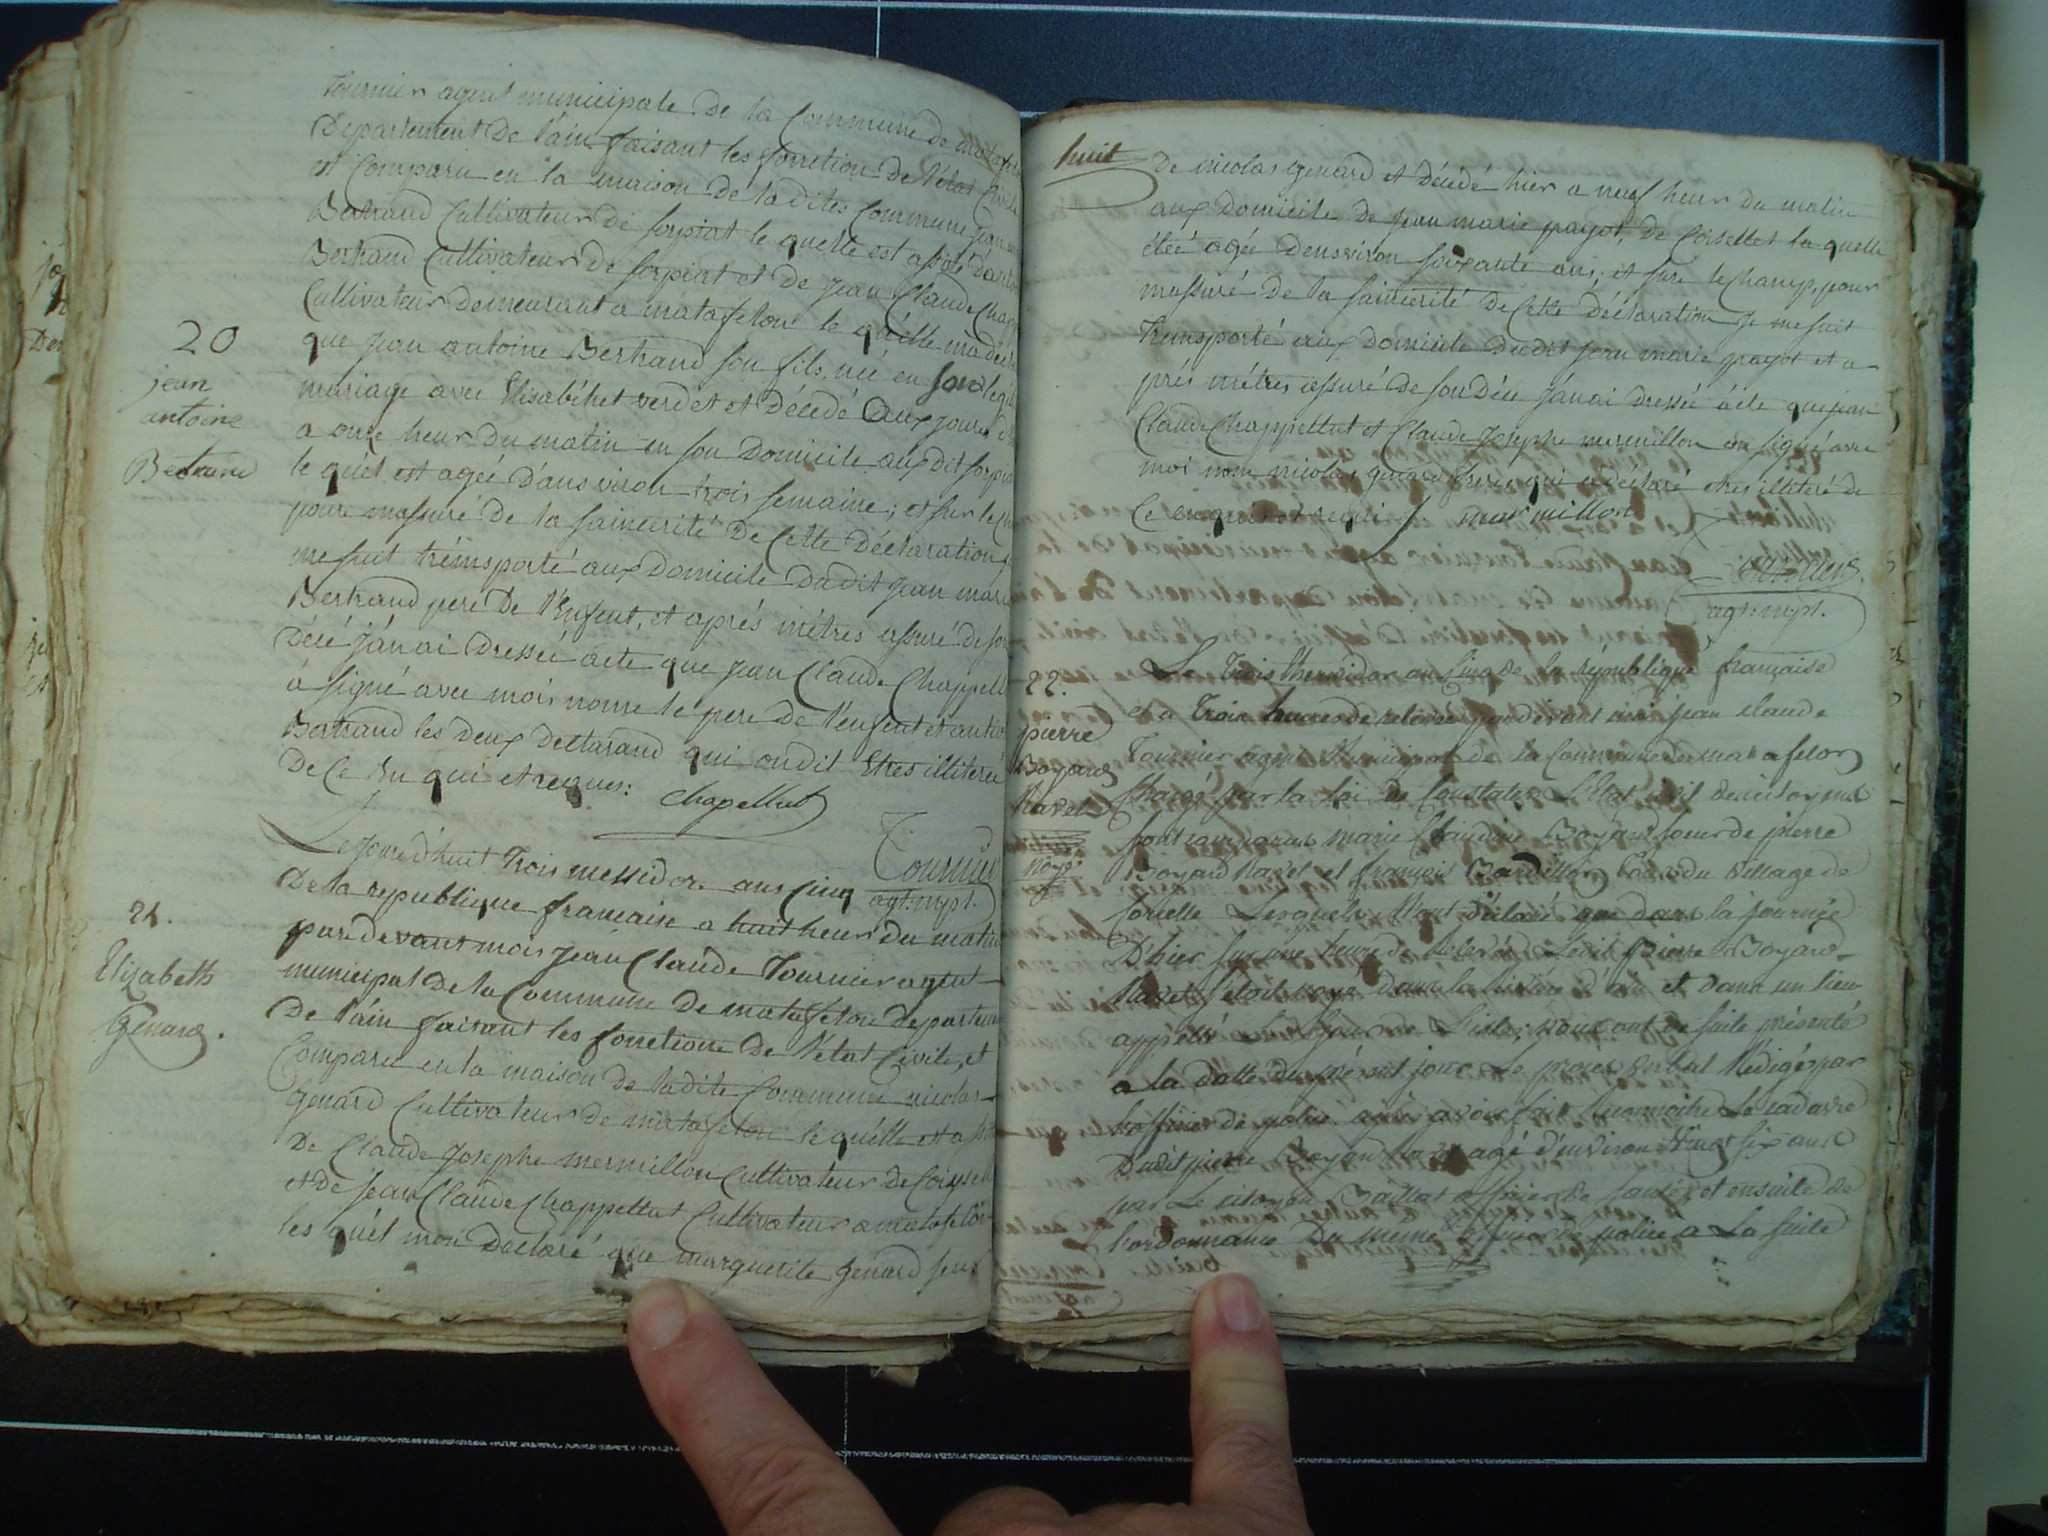 tournier agent municipale De la Commune de matafelon
Departement De l'ain faisant les fonction De l'etat Civile
et Comparu en la maison de ladites Commune jean
Bertrand Cultivateur de sorpiat le quelle est assisté
Bertrand Cultivateur De sorpiat et De jean Claude Chap
Cultivateur Demeurant a matafelon le quelle ma decl
que jean antoine Bertrand son fils, née en son leg
mariage avec Elisabéhet verdet et Décedé aux jours
a onze heur Du matin en son Domicile aux dit sorpia
le quel est agée d'ans viron trois semaine; et sur le
poure massuré de la saincerité De Cette Déclaration
me suit tréinsporté aux Domicile Dudit jean marie
Bertrand pere De l'Enfent, et aprés métres assuré de son
Décé j'ánai Dressée acte que jean Claude Chappell
a signé avec moi nome le pere de l'enfent et
Bertrand les Deux Declarand qui ondit Etres illiteré
De Ce En qui et reques: Chapellut
Tournier
agt. mpl.
20
jean
antoine
Bertrand
Le jourd'huit Trois messidor ans Cinq
De la republique francaise a huit heur du matin
pardevant moi jean Claude Tournier agent
municipal De la Commune De matafelon departem
De l'ain faisant les fonctions De l'etat Civile, et
Comparu en la maison de ladite Commune nicolas
genard Cultivateur de matafelon le quelle est
De Claude Josephe mermillon Cultivateur De Coiss
et de jean Claude Chappellut Cultivateur a matafelon
les quel mon Déclaré que marguerite genard
21.
Elizabeth
Genard.
huit
de nicolas genard et décedé hier a neuf heur du matin
aux domicile de jean marie payot, de Coisellet la quelle
étée agée densviron soixante ans; et sure le Champ, pour
massuré De la saincerité De Cette Déclaration je me suit
treinsporté aux Domicile Dudit jean marie payot et a
prés métres assuré de son Décé j'ánai Dressée acte que jean
Claude Chappellut et Claude Josephe mermillon on signé avec
moi nom nicolas genard frere qui a déclaré etres illiteré de
Ce enquis et requi mermillon
agt. mpl.
22.
pierre
Boyard
Navet
Noyé
Le Trois thermidor an Cinq de la république française
et a Trois heures de relevée pardevant moi jean claude
Tournier agent Municipal de la Commune de matafelon
Chargé par la loi de Constater L'Etat civil des citoyens
sont comparus marie Claudine Boyard soeur de pierre
Boyard Navet et françois Bardillon tous du Village de
Lesquels M'ont déclaré que dans la journée
D'hier sur une heure de Relevée Ledit Pierre Boyard
Navet s'etoit noyé dans la riviere d'ain et dans un lieu
appellé nous ont de suite présenté
a la datte du présent jour Le proces verbal Rédigé par
L'officier de police après avoir fait reconnoitre Le cadavre
Dudit pierre Boyard Navet agé d'environ Vingt six ans
par Le citoyen Baillat officier de santé et ensuite de
L'ordonnance Du meme officier de police a La suite